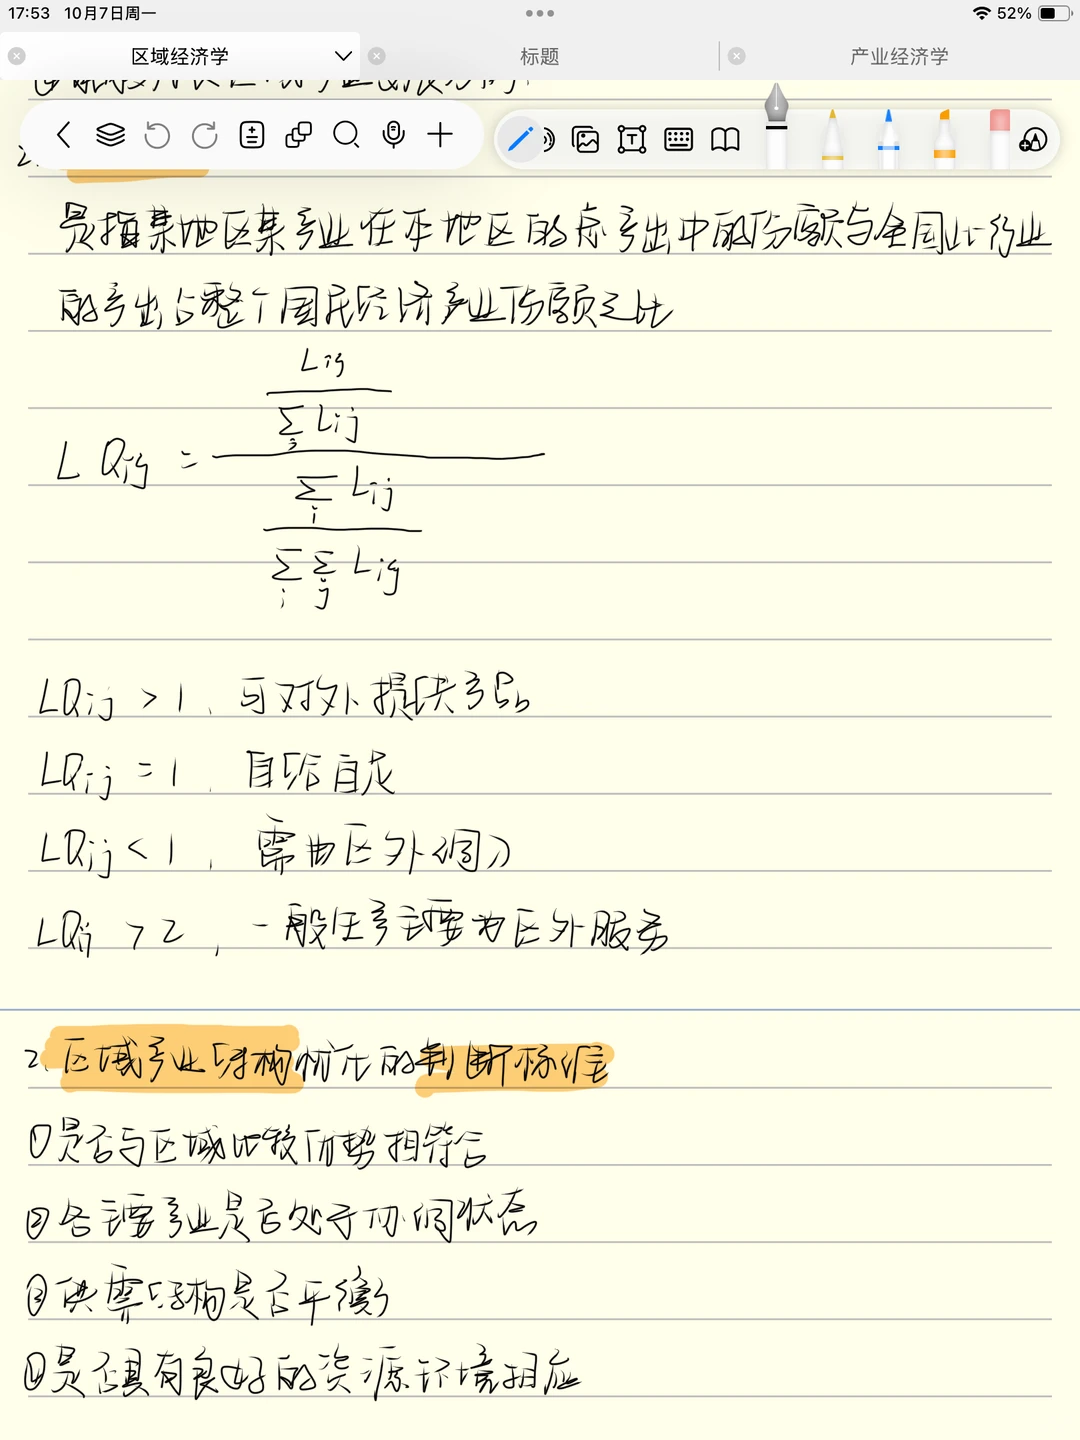 17:53 10月7日周一
52%
区域经济学
标题
产业经济学
2.
是指某地区某产业在本地区的总产出中的份额与全国此行业
的产出占整个国民经济产业份额之比
LQij = (Lij / ∑j Lij) / (∑i Lij / ∑i ∑j Lij)
LQij > 1, 可对外提供产品
LQij = 1, 自给自足
LQij < 1, 需由区外调入
LQij > 2, 一般生产主要为区外服务
2. 区域产业结构优化的判断标准
①是否与区域比较优势相符合
②各主要产业是否处于协调状态
③供需结构是否平衡
④是否具有良好的资源环境相应